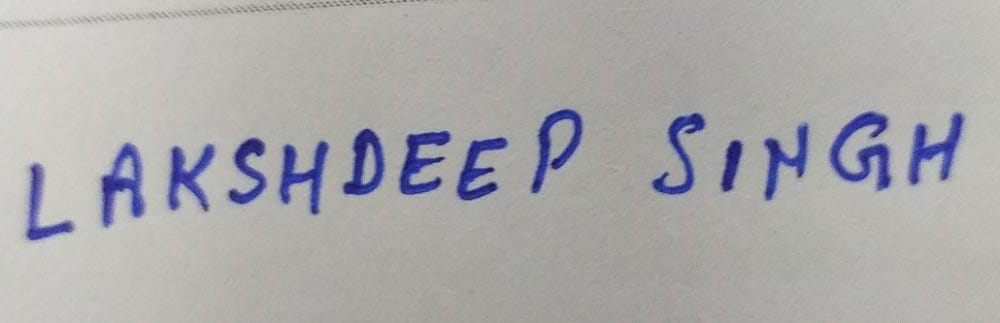 LAKSHDEEP SINGH